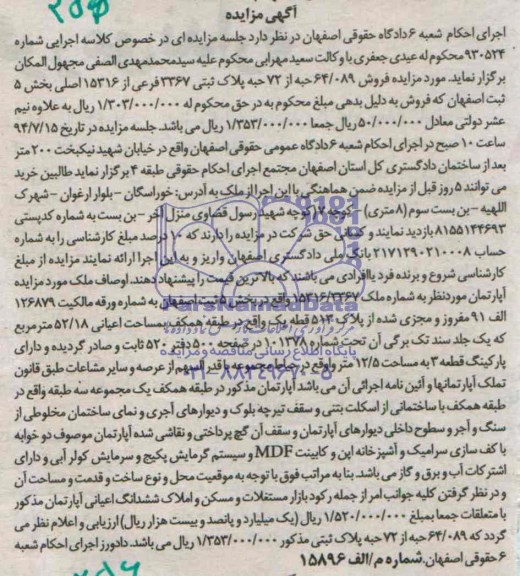 آگهی مزایده
اجرای احکام شعبه ۶ دادگاه حقوقی اصفهان در نظر دارد جلسه مزایده ای در خصوص کلاسه اجرایی شماره
۹۳۰۵۲۴ محکوم له عیدی جعفری با وکالت سعید مهرابی محکوم علیه سید محمدمهدی الصفی مجهول المکان
برگزار نماید. مورد مزایده فروش ۶۴/۰۸۹ حبه از ۷۲ حبه پلاک ثبتی ۳۳۶۷ فرعی از ۱۵۳۱۶ اصلی بخش ۵
ثبت اصفهان که فروش به دلیل بدهی مبلغ محکوم به در حق محکوم له ۱/۳۰۳/۰۰۰/۰۰۰ ریال به علاوه نیم
عشر دولتی معادل ۵۰/۰۰۰/۰۰۰ ریال جمعا ۱/۳۵۳/۰۰۰/۰۰۰ ریال می باشد. جلسه مزایده در تاریخ ۹۴/۷/۱۵
ساعت ۱۰ صبح در اجرای احکام شعبه ۶ دادگاه عمومی حقوقی اصفهان واقع در خیابان شهید نیکبخت ۲۰۰ متر
بعد از ساختمان دادگستری کل استان اصفهان مجتمع اجرای احکام حقوقی طبقه ۴ برگزار نماید طالبین خرید
می توانند ۵ روز قبل از مزایده ضمن هماهنگی با این اجرا از ملک به آدرس: خوراسگان - بلوار ارغوان - شهرک
اللهیه - بن بست سوم (۸ متری) - کوچه ۱۷ کوچه شهید رسول قضاوی منزل آخر - بن بست به شماره کدپستی
۸۱۵۵۱۴۴۶۹۳ بازدید نمایند و کسانی حق شرکت در مزایده را دارند که ۱۰ درصد مبلغ کارشناسی را به شماره
حساب ۲۱۷۱۲۹۰۲۱۰۰۰۸ بانک ملی دادگستری اصفهان واریز و به این اجرا ارائه نمایند مزایده از مبلغ
کارشناسی شروع و برنده فرد یا افرادی می باشند که بالاترین قیمت را پیشنهاد دهند. اوصاف ملک مورد مزایده
آپارتمان موردنظر به شماره ملک ۱۵۳۱۶/۳۳۶۷ واقع در بخش ۵ ثبت اصفهان به شماره ورقه مالکیت ۱۲۶۸۷۹
الف ۹۱ مفروز و مجزی شده از پلاک ۵۱۳ قطعه یک واقع در طبقه همکف به مساحت اعیانی ۵۲/۱۸ متر مربع
که یک جلد سند تک برگی آن تحت شماره ۱۰۱۳۷۸ در صفحه ۵۰۰ دفتر ۵۲۰ ثابت و صادر گردیده و دارای
پارکینگ قطعه ۳ به مساحت ۱۲/۵ متر واقع در حیاط مجموعه با قدرالسهم از عرصه و سایر مشاعات طبق قانون
تملک آپارتمانها و آئین نامه اجرائی آن می باشد آپارتمان مذکور در طبقه همکف یک مجموعه سه طبقه واقع در
طبقه همکف با ساختمانی از اسکلت بتنی و سقف تیرچه بلوک و دیوارهای آجری و نمای ساختمان مخلوطی از
سنگ و آجر و سطوح داخلی دیوارهای آپارتمان و سقف آن گچ پرداختی و نقاشی شده آپارتمان موصوف دو خوابه
با کف سازی سرامیک و آشپزخانه اپن و کابینت MDF و سیستم گرمایش پکیج و سرمایش کولر آبی و دارای
اشتراکات آب و برق و گاز می باشد. بنا به مراتب فوق با توجه به موقعیت محل و نوع ساخت و قدمت و مساحت آن
و در نظر گرفتن کلیه جوانب امر از جمله رکود بازار مستغلات و مسکن و املاک ششدانگ اعیانی آپارتمان مذکور
با متعلقات جمعا بمبلغ ۱/۵۲۰/۰۰۰/۰۰۰ ریال (یک میلیارد و پانصد و بیست هزار ریال) ارزیابی و اعلام نظر می
گردد که ۶۴/۰۸۹ حبه از ۷۲ حبه پلاک ثبتی مذکور ۱/۳۵۳/۰۰۰/۰۰۰ ریال می باشد. دادورز اجرای احکام شعبه
۶ حقوقی اصفهان. شماره م/الف ۱۵۸۹۶